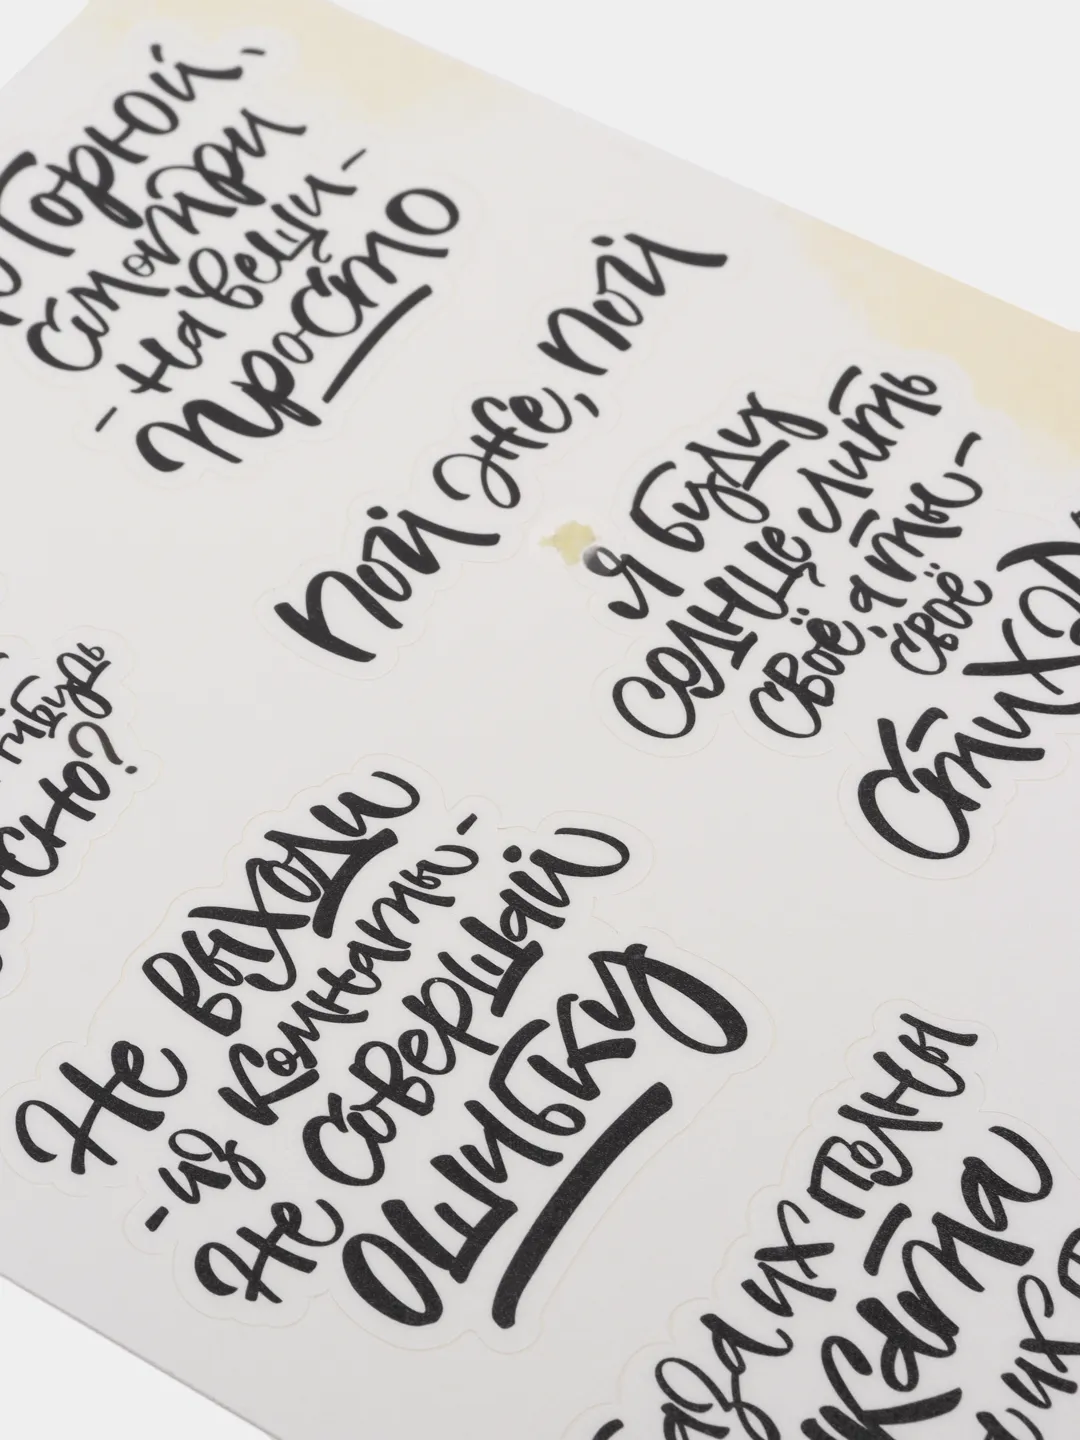 Торкой,
Смотри
- на вещи -
просто
пой же, пой
Я буду
солнце лить
своё, а ты -
своё
Стих
нибудь
Не выходи
- из комнаты -
Не совершай
ошибку
их полны
их